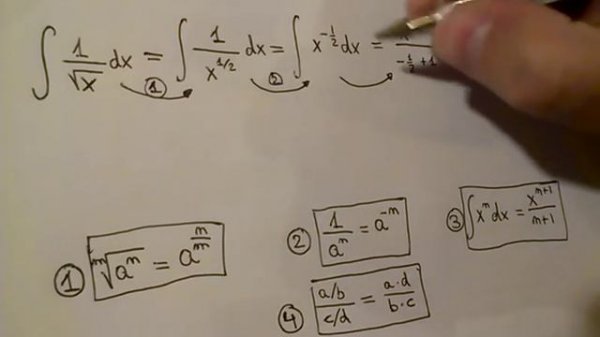 ∫ 1/√x dx = ∫ 1/x^{1/2} dx = ∫ x^{-1/2} dx = /(-1/2 + 1
① ② 
① ᵐ√aⁿ = a^{n/m}
② 1/aⁿ = a^{-n}
③ ∫ xⁿ dx = x^{n+1}/n+1
④ (a/b)/(c/d) = a·d/b·c